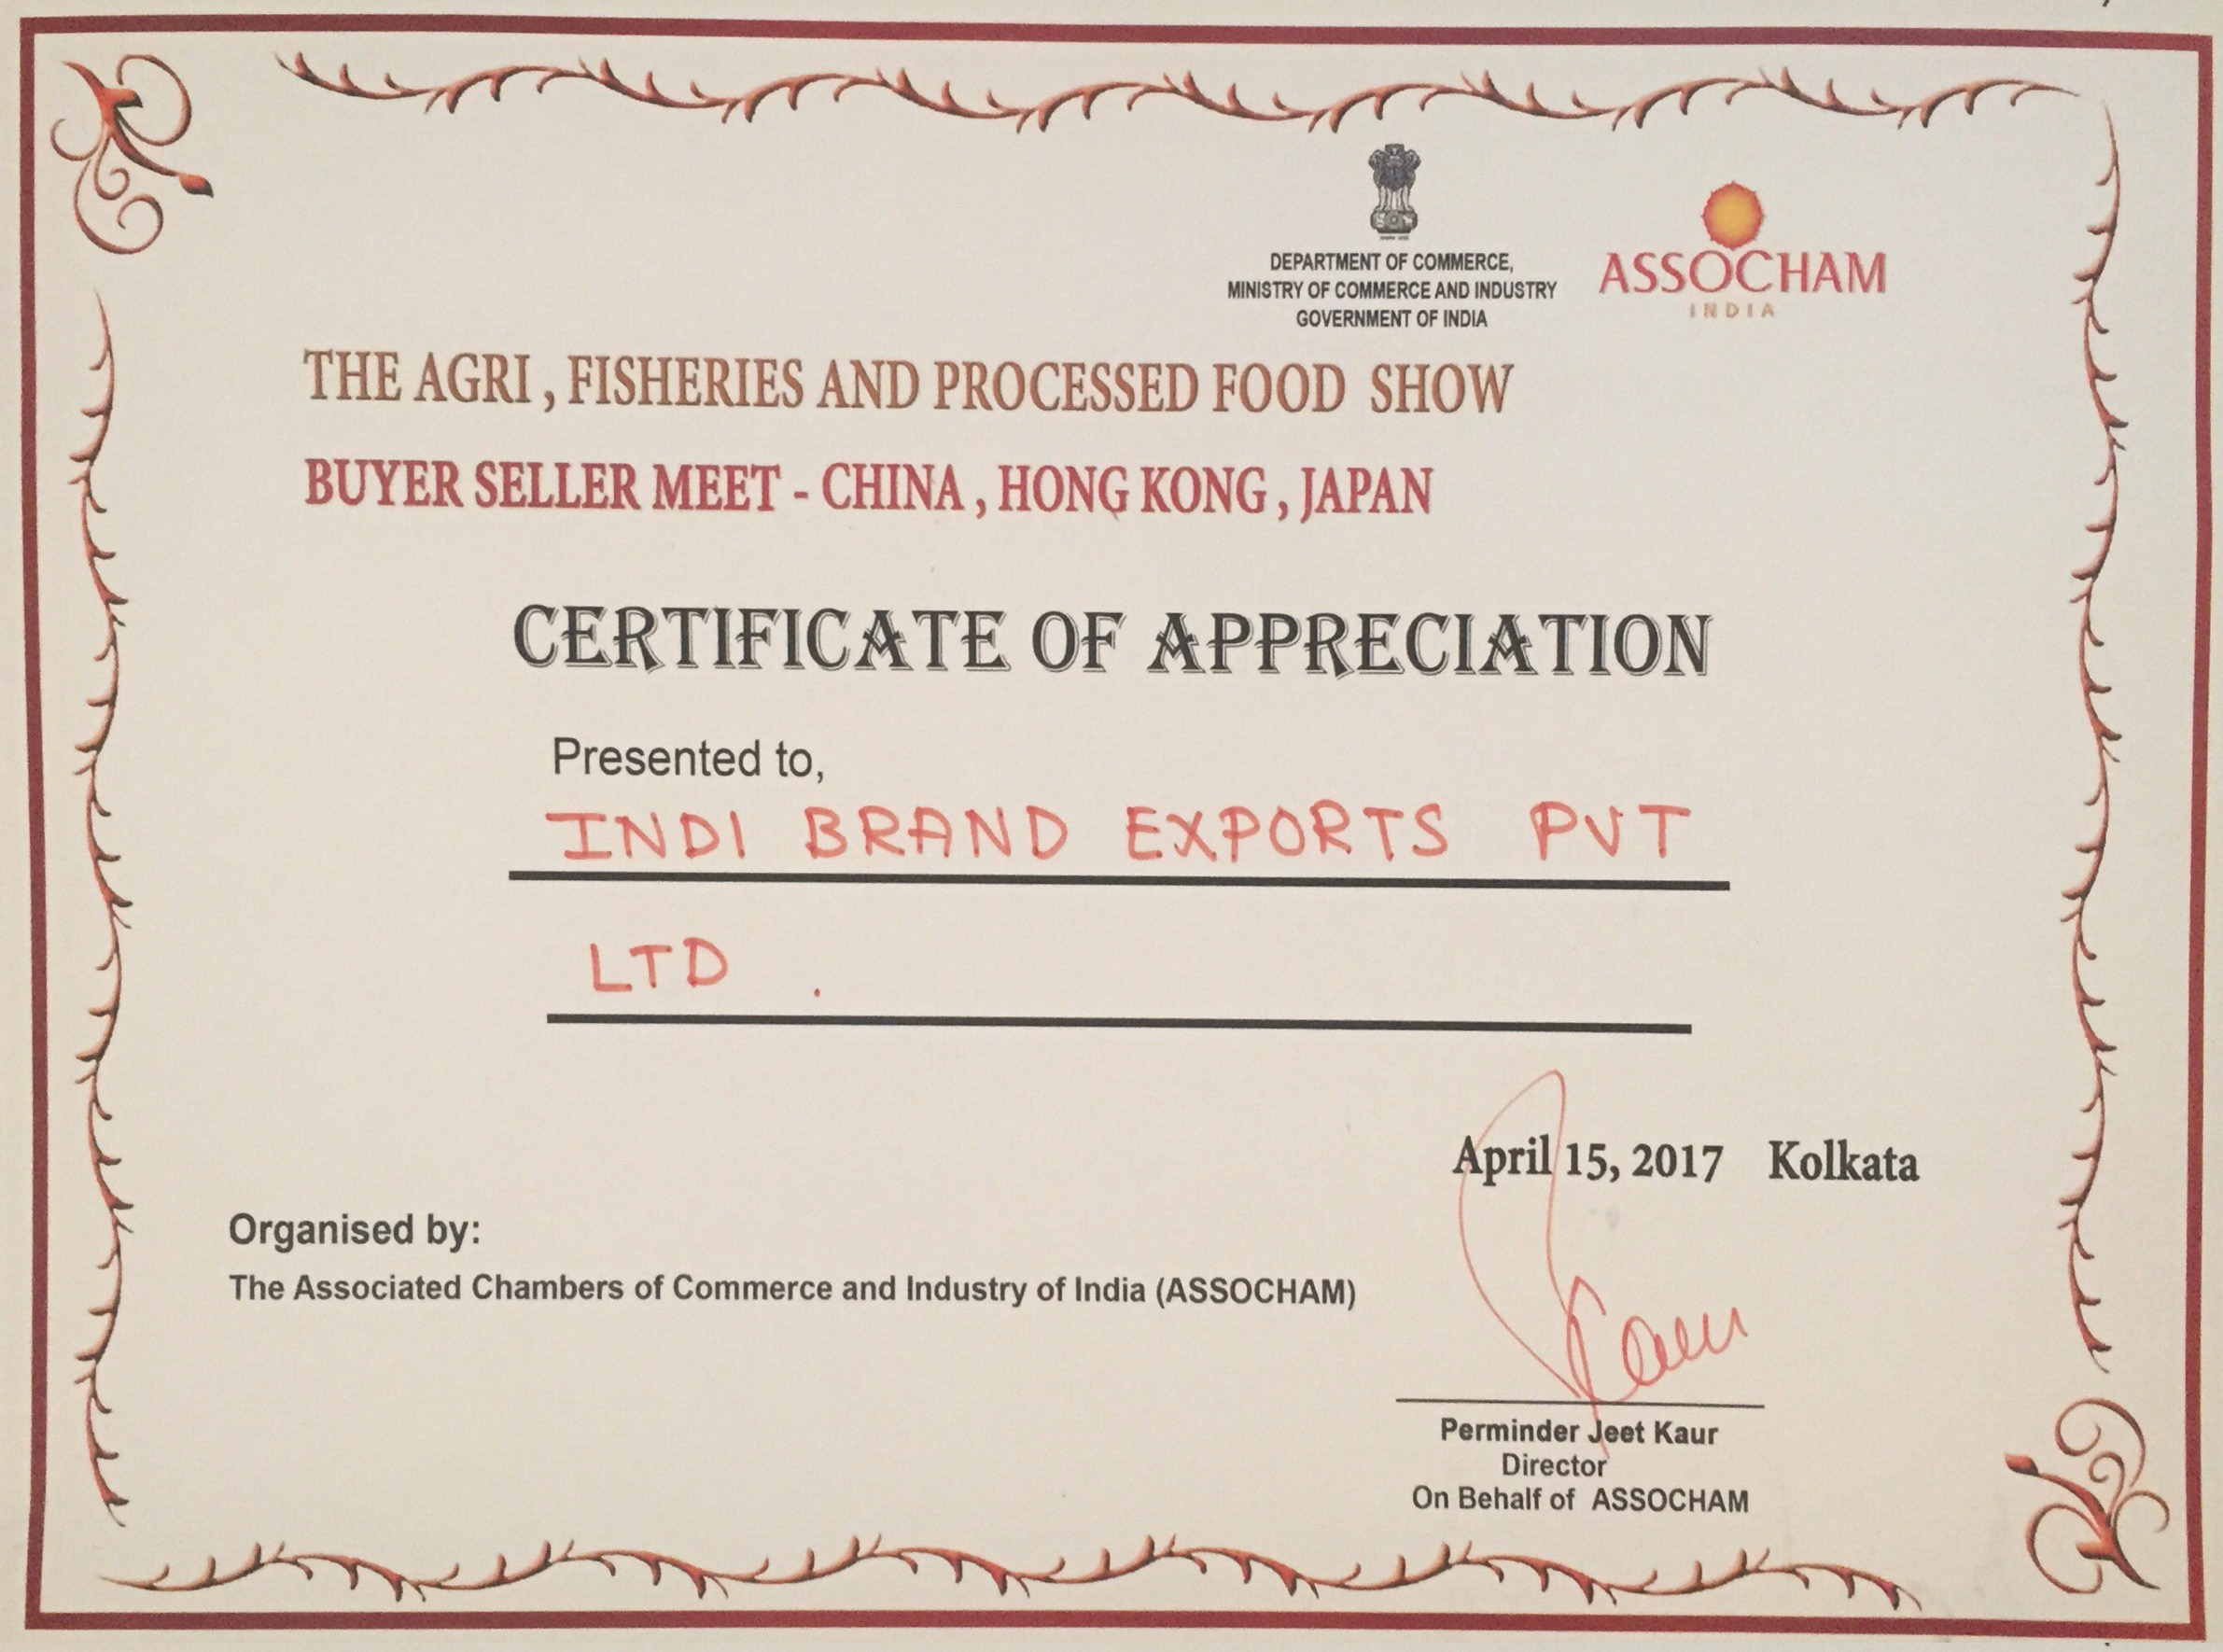 DEPARTMENT OF COMMERCE,
MINISTRY OF COMMERCE AND INDUSTRY
GOVERNMENT OF INDIA
ASSOCHAM
INDIA
THE AGRI , FISHERIES AND PROCESSED FOOD SHOW
BUYER SELLER MEET - CHINA , HONG KONG , JAPAN
CERTIFICATE OF APPRECIATION
Presented to,
INDI BRAND EXPORTS PVT
LTD .
April 15, 2017 Kolkata
Organised by:
The Associated Chambers of Commerce and Industry of India (ASSOCHAM)
Kaur
Perminder Jeet Kaur
Director
On Behalf of ASSOCHAM